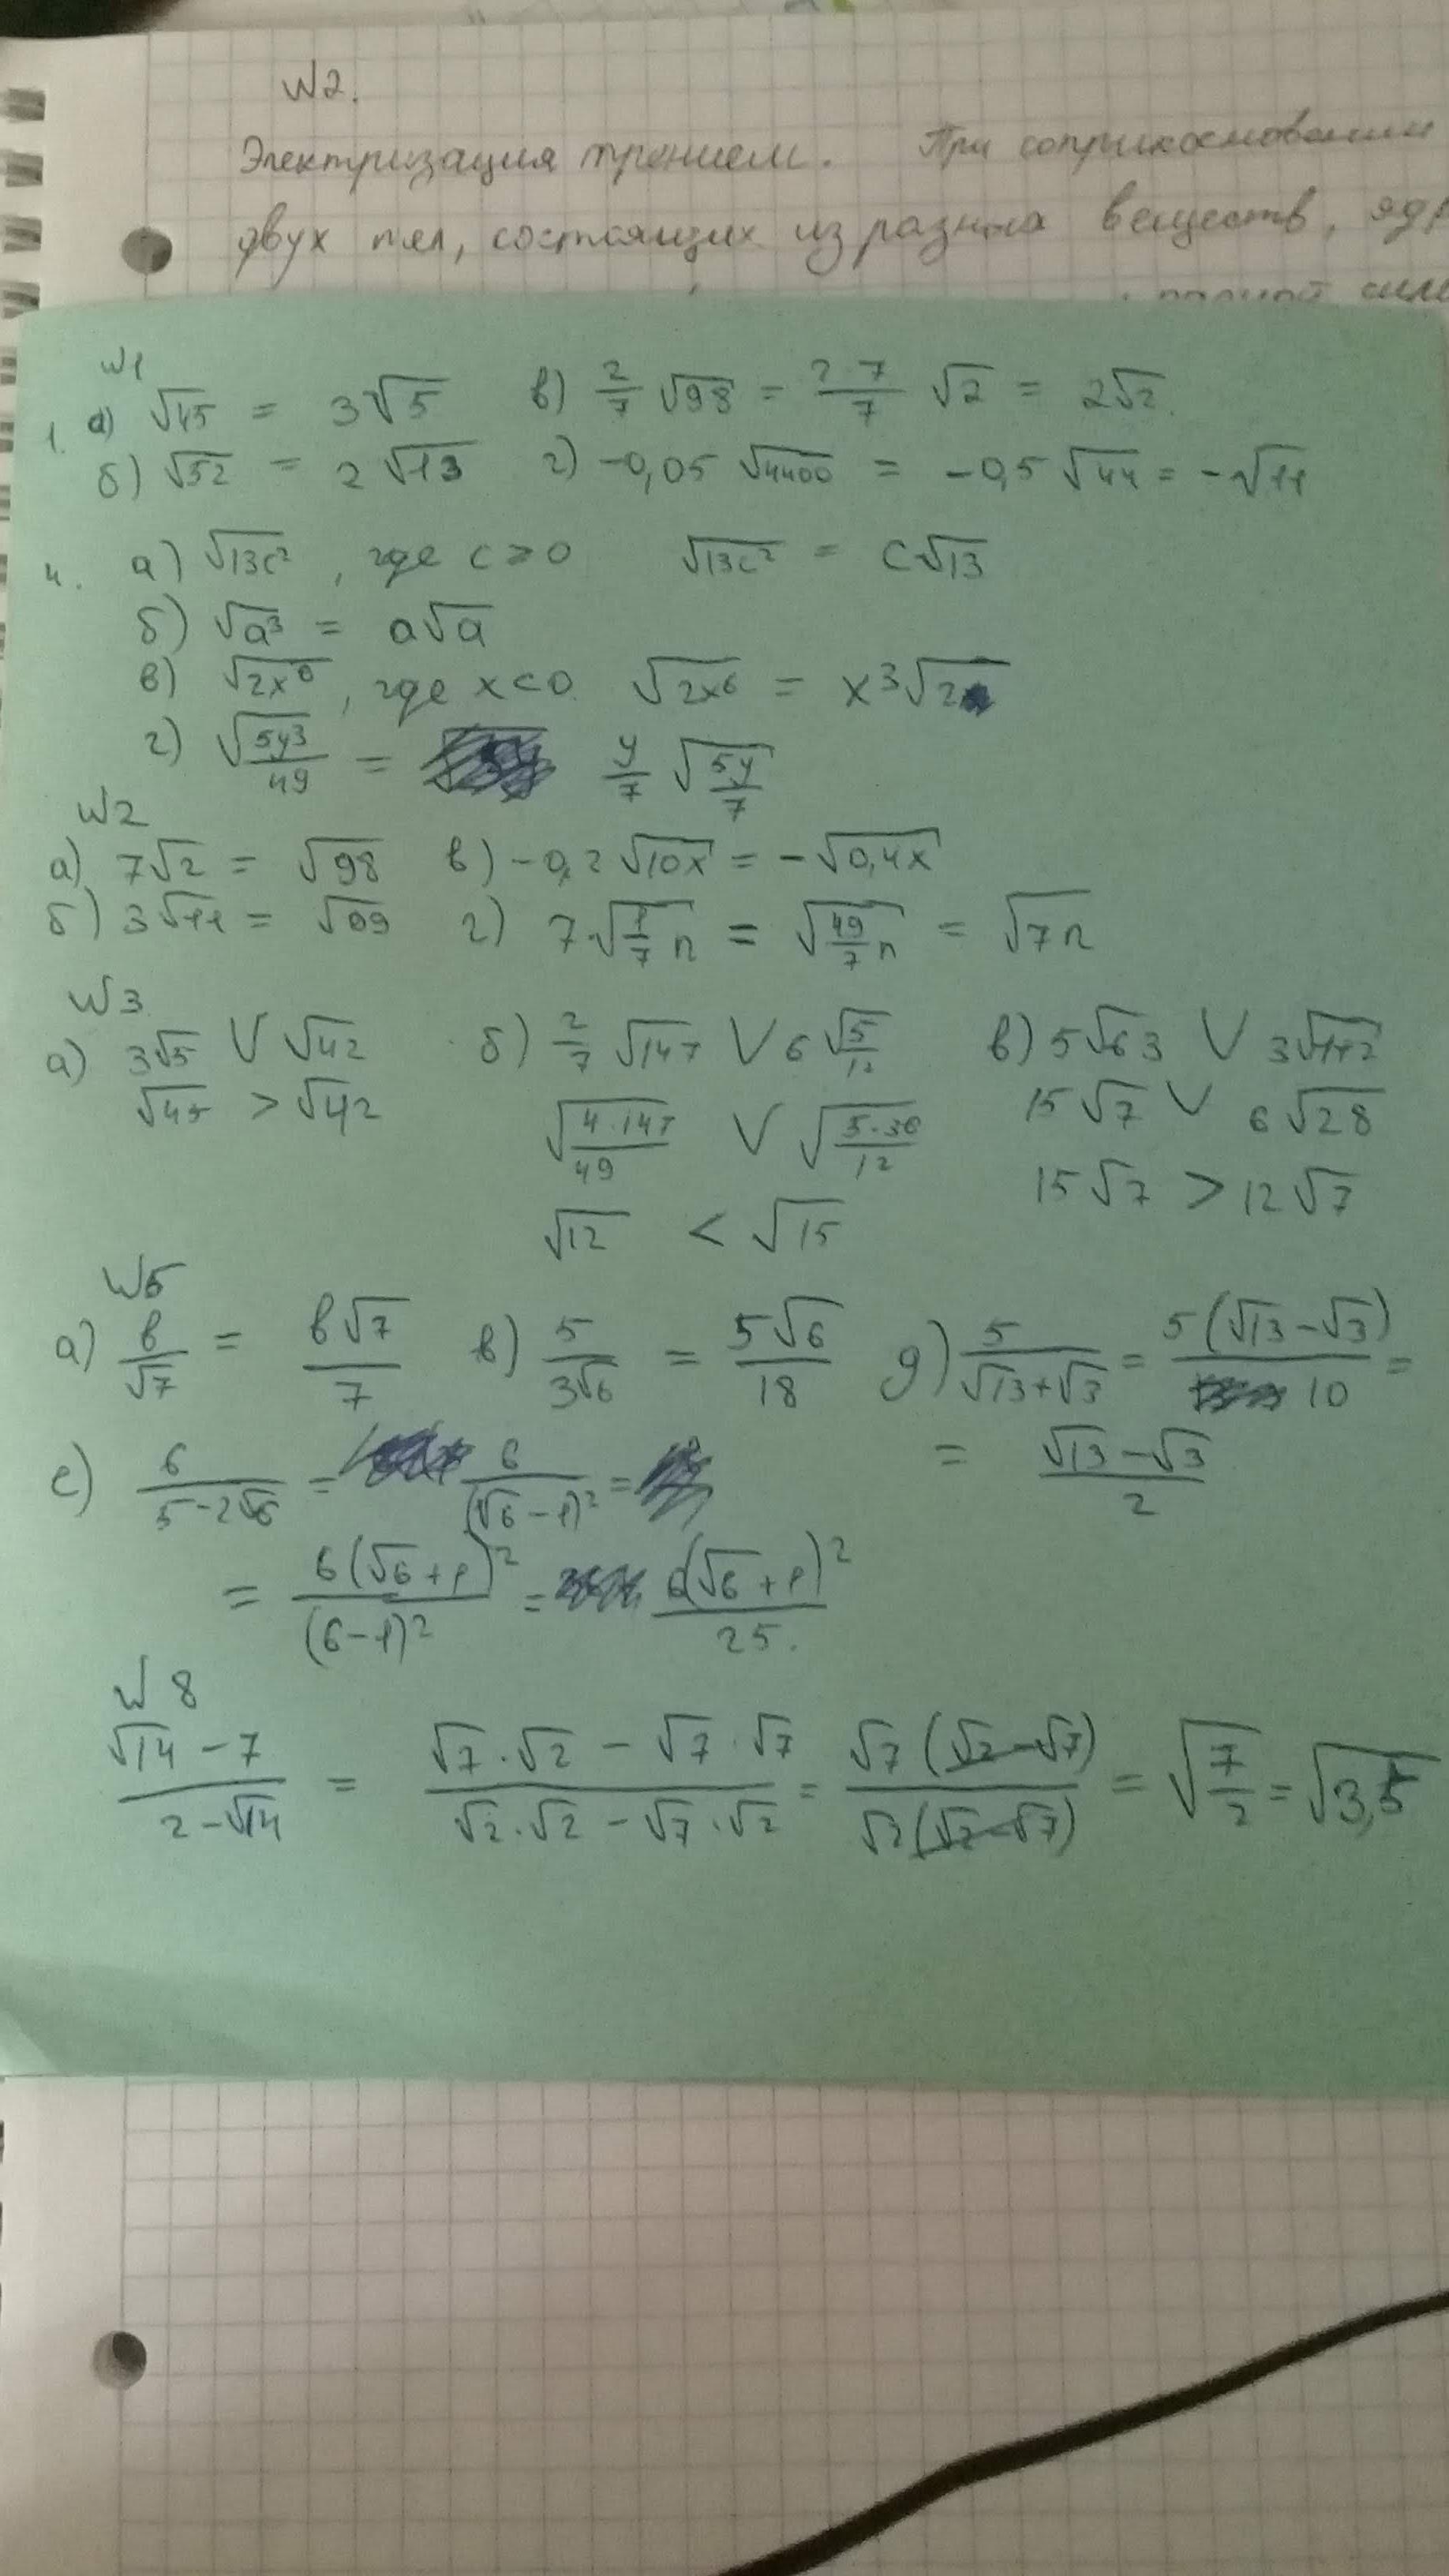 №2.
Электризация трением. При соприкосновении
двух тел, состоящих из разных веществ, ядр
№1
1. а) √45 = 3√5 в) 2/7 √98 = 2·7/7 √2 = 2√2.
б) √52 = 2√13 г) -0,05 √4400 = -0,5 √44 = -√11
4. а) √13c², где c ≥ 0 √13c² = c√13
б) √a³ = a√a
в) √2x⁶, где x<0 √2x⁶ = x³√2
г) √5y³/49 = y/7 √5y/7
№2
а) 7√2 = √98 в) -0,2 √10x = -√0,4x
б) 3√11 = √99 г) 7√1/7 n = √49/7 n = √7n
№3
а) 3√5 V √42 б) 2/7 √147 V 6 √5/12 в) 5√63 V 3√112
√45 > √42 √4·147/49 V √5·36/12 15√7 V 6√28
√12 < √15 15√7 > 12√7
№5
а) в/√7 = в√7/7 в) 5/3√6 = 5√6/18 д) 5/√13+√3 = 5(√13-√3)/10 =
= √13-√3/2
е) 6/5-2√6 = 6/(√6-1)² =
= 6(√6+1)²/(6-1)² = 6(√6+1)²/25.
№8
√14-7/2-√14 = √7·√2-√7·√7/√2·√2-√7·√2 = √7(√2-√7)/√2(√2-√7) = √7/2 = √3,5